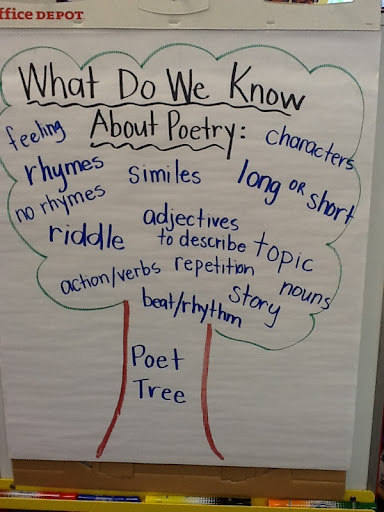 ffice DEPOT
What Do We Know
About Poetry:
feeling
characters
rhymes
similes
long or short
no rhymes
adjectives
to describe
riddle
topic
action/verbs
repetition
nouns
story
beat/rhythm
Poet
Tree